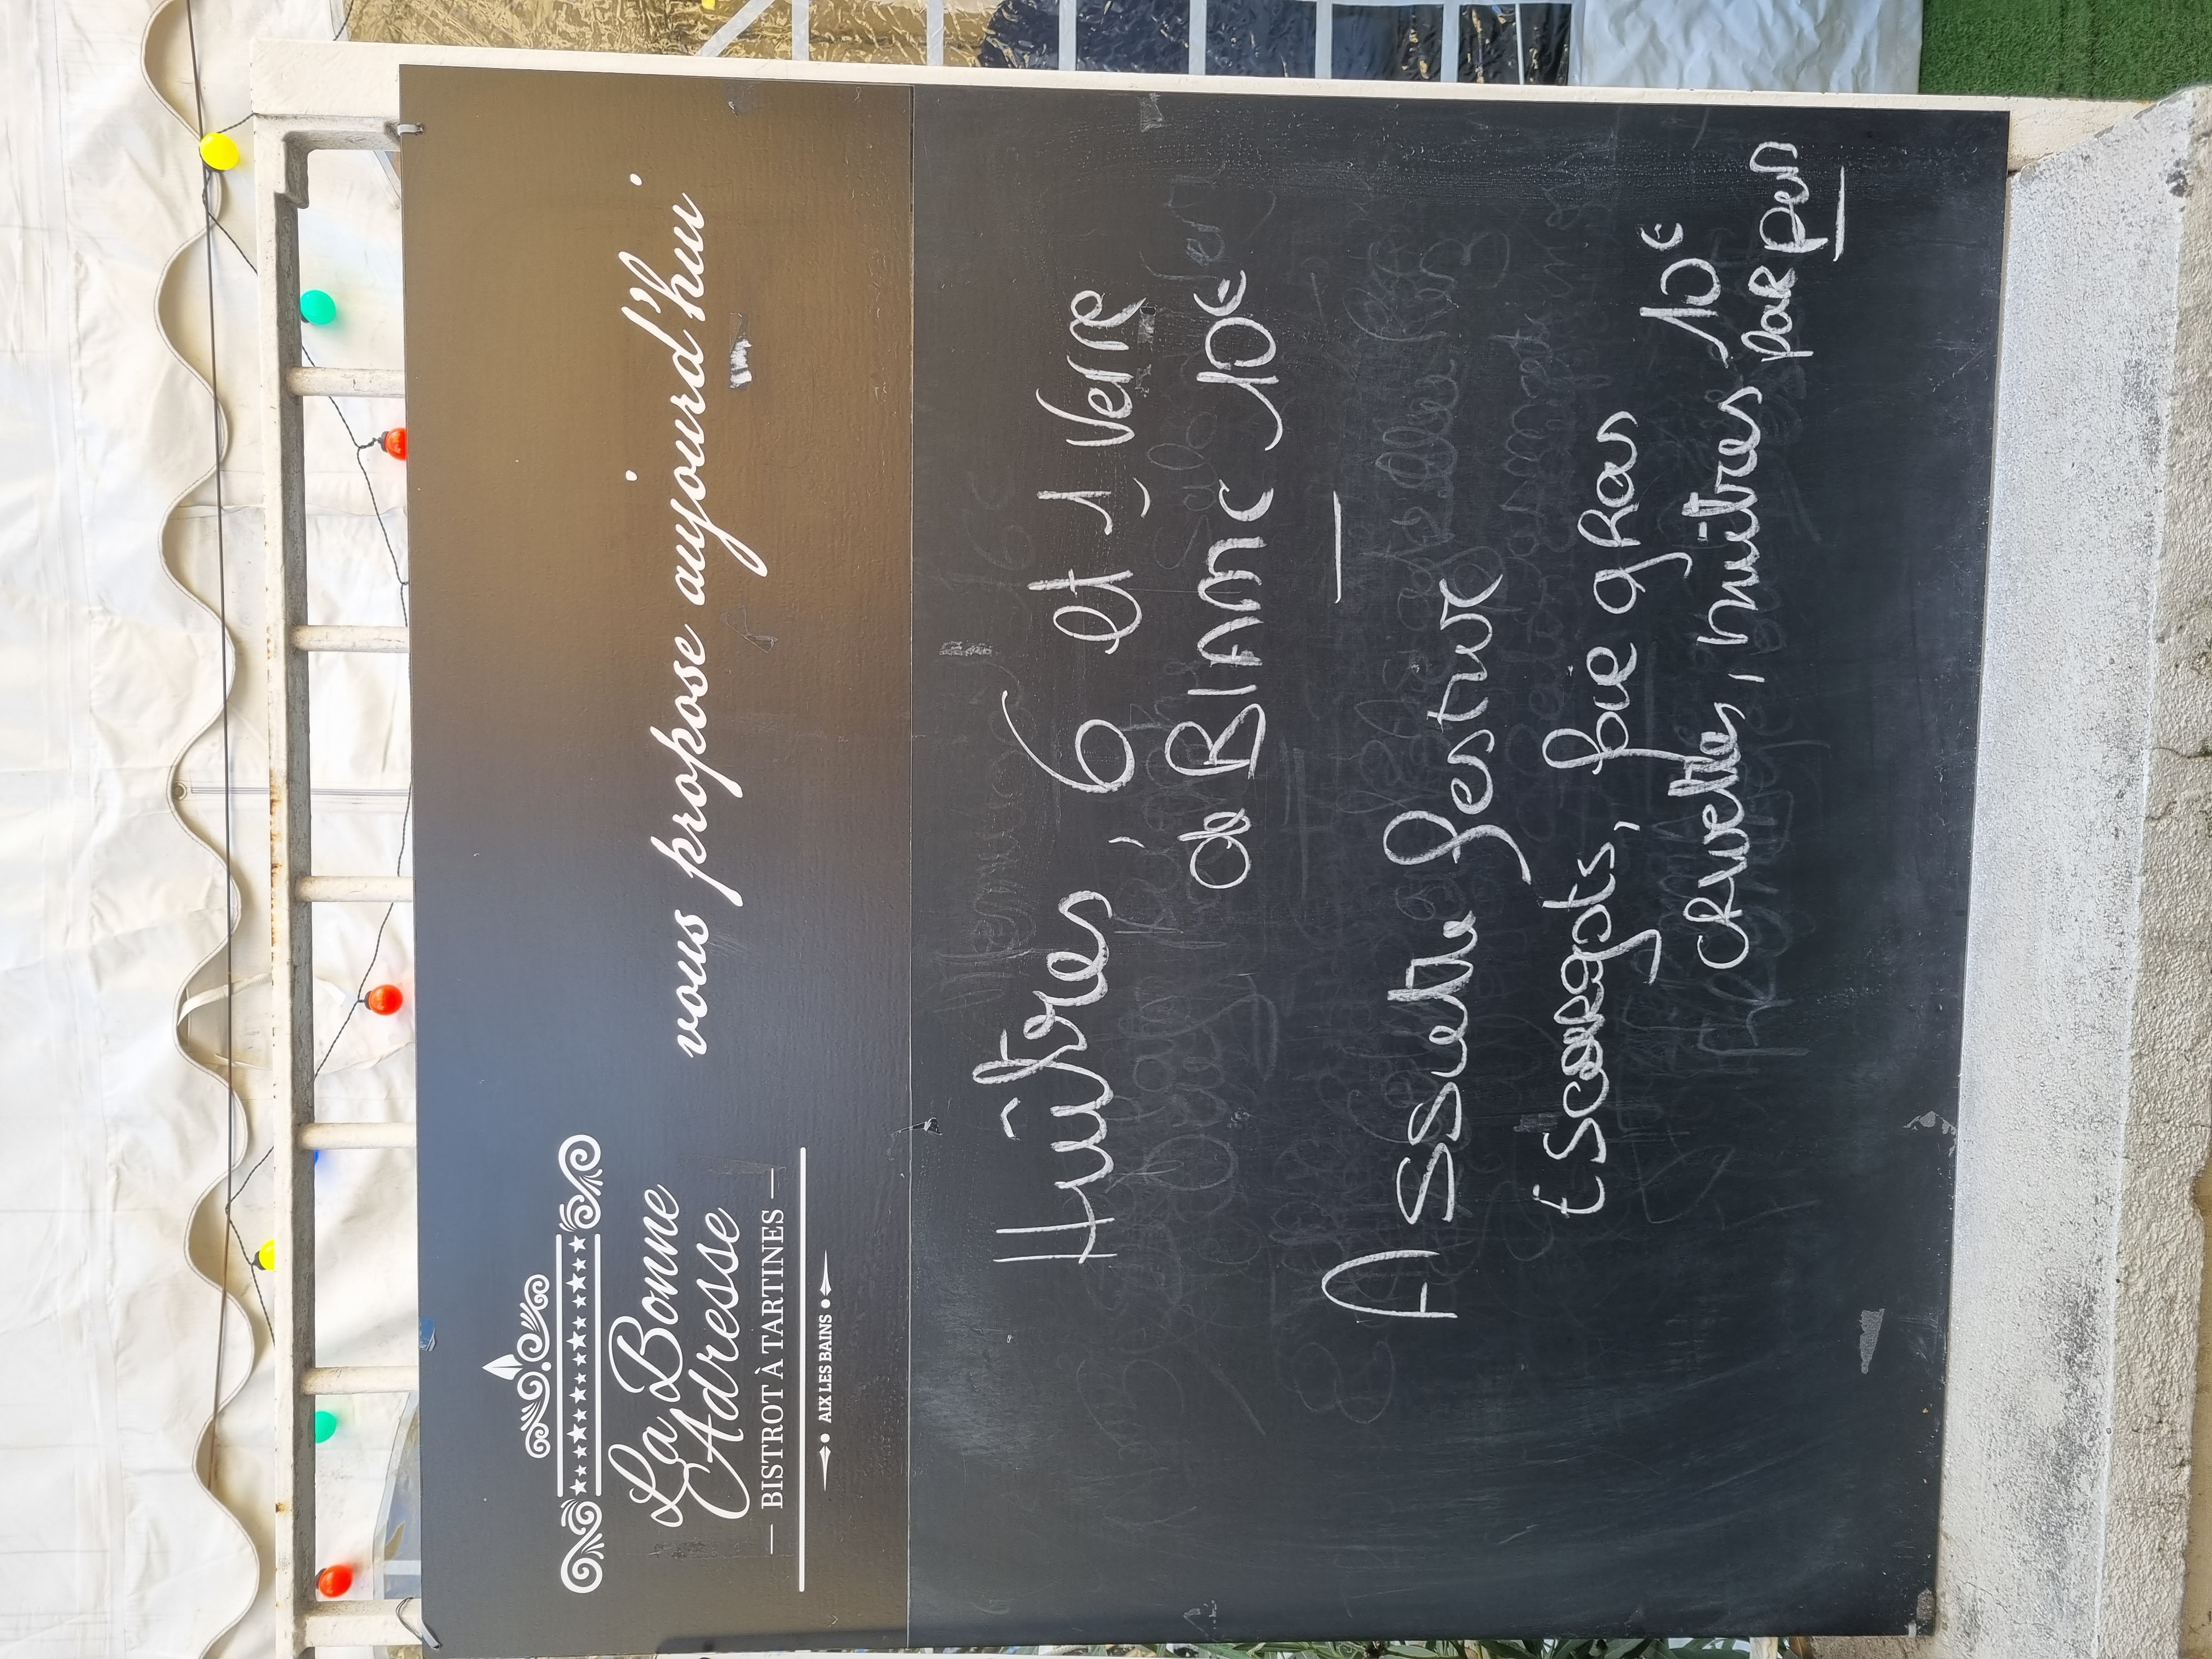 La Bonne
Adresse
BISTROT À TARTINES
AIX LES BAINS
vous propose aujourd'hui
Huîtres, 6 et 1 Verre
de BLANC 10€
Assiette festive
Escargots, foie gras
crevettes, huitres 10€
par pers